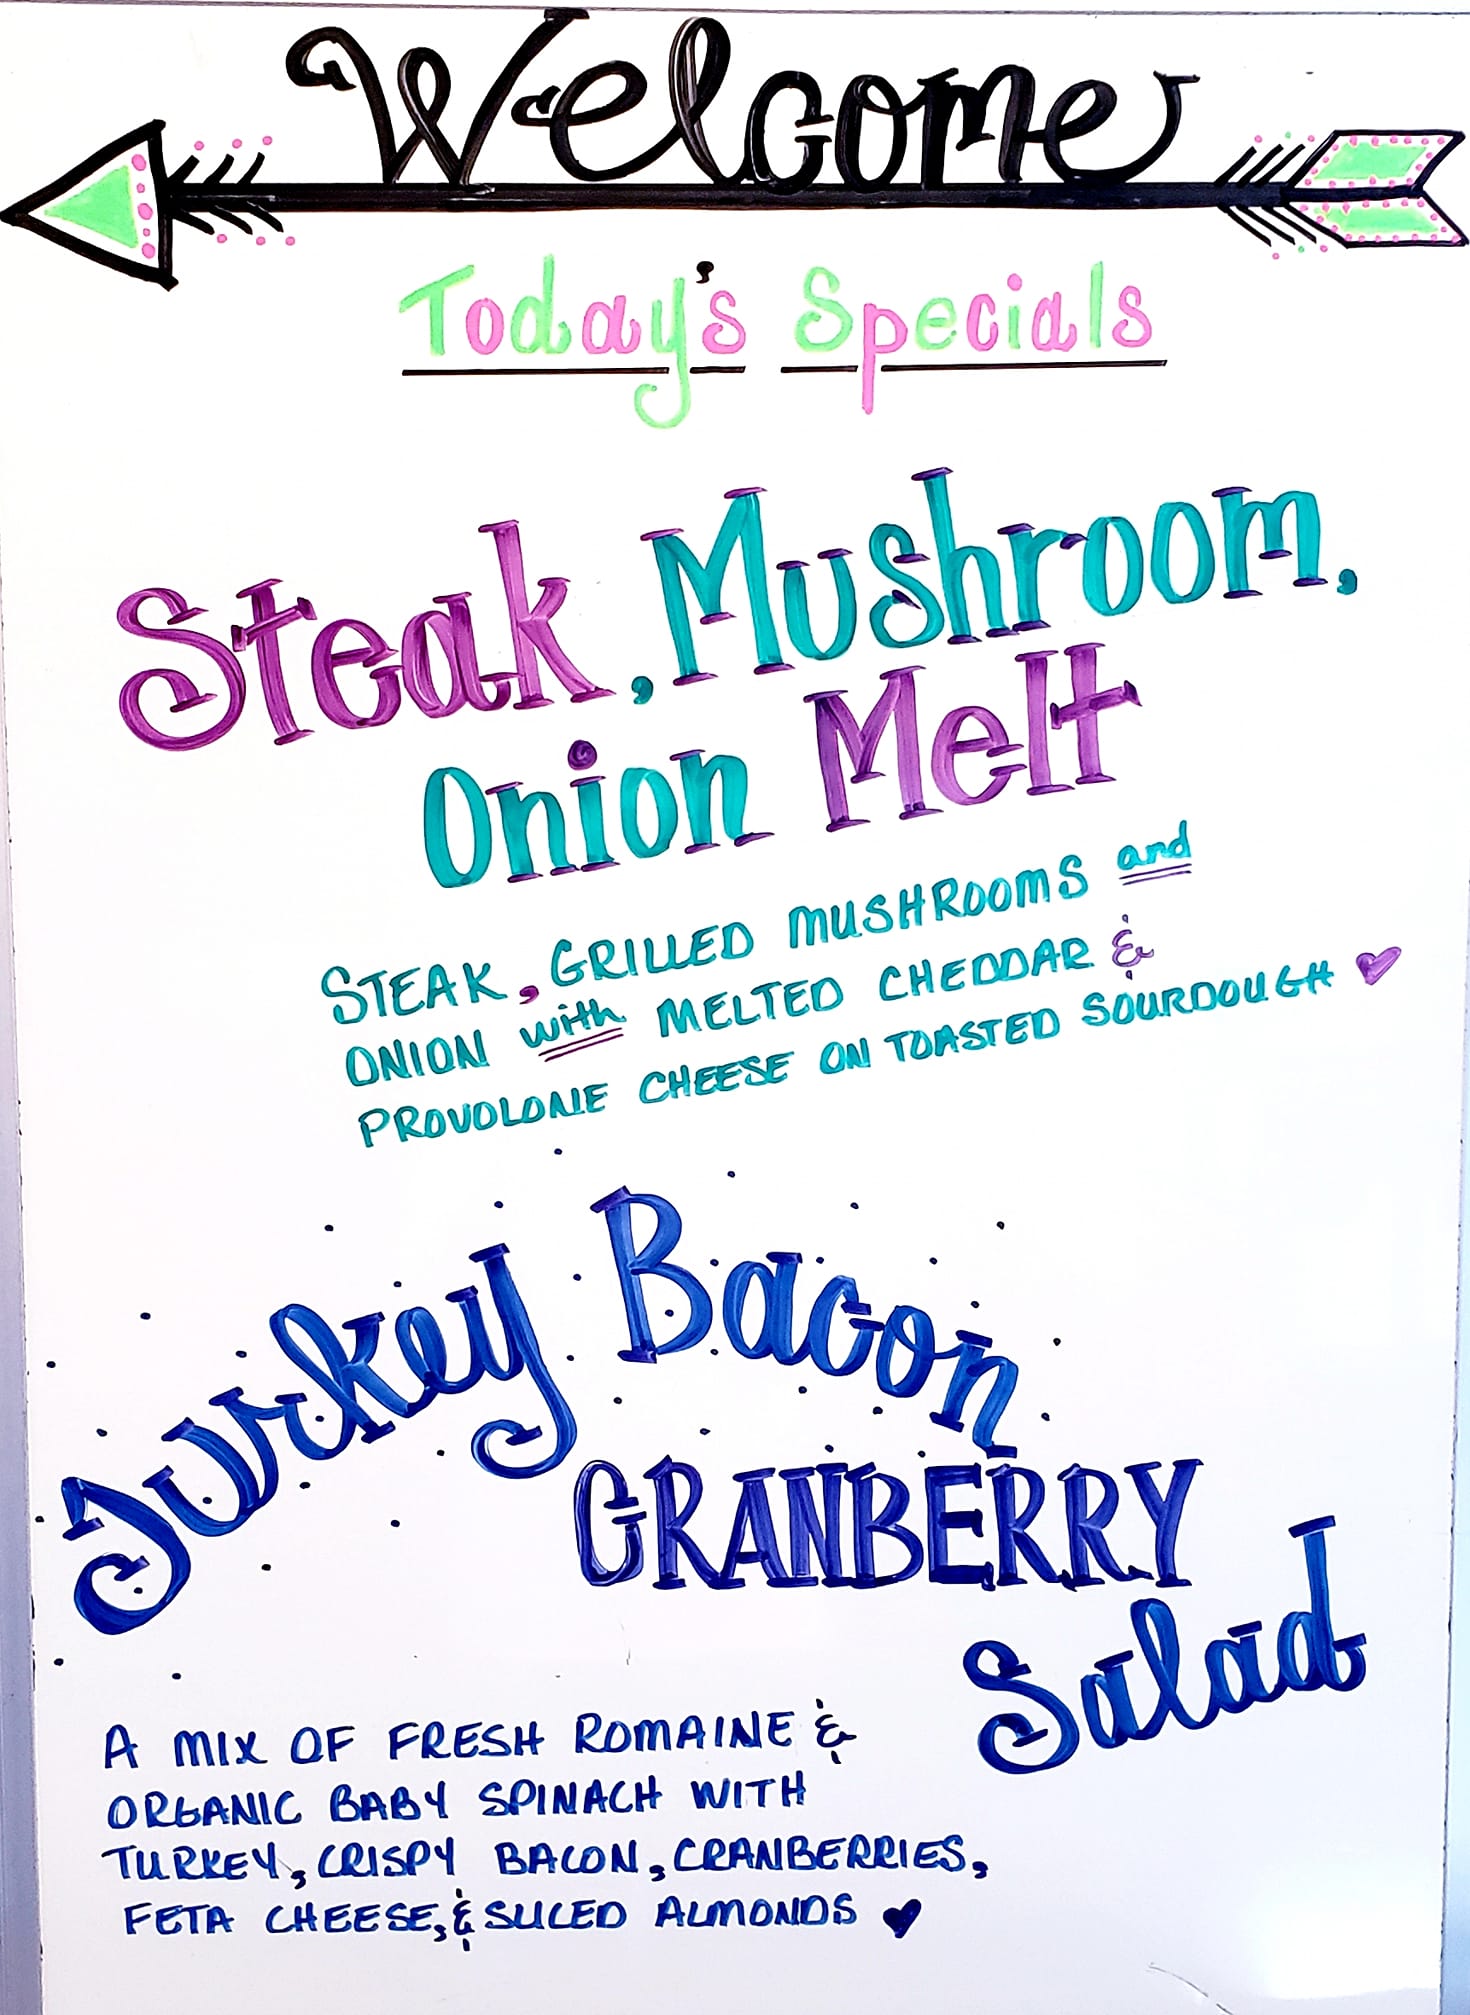 Welcome
Today's Specials
Steak, Mushroom,
Onion Melt
STEAK, GRILLED MUSHROOMS and
ONION with MELTED CHEDDAR &
PROVOLONE CHEESE ON TOASTED SOURDOUGH ♥
Turkey Bacon
CRANBERRY
Salad
A MIX OF FRESH ROMAINE &
ORGANIC BABY SPINACH WITH
TURKEY, CRISPY BACON, CRANBERRIES,
FETA CHEESE, & SLICED ALMONDS ♥